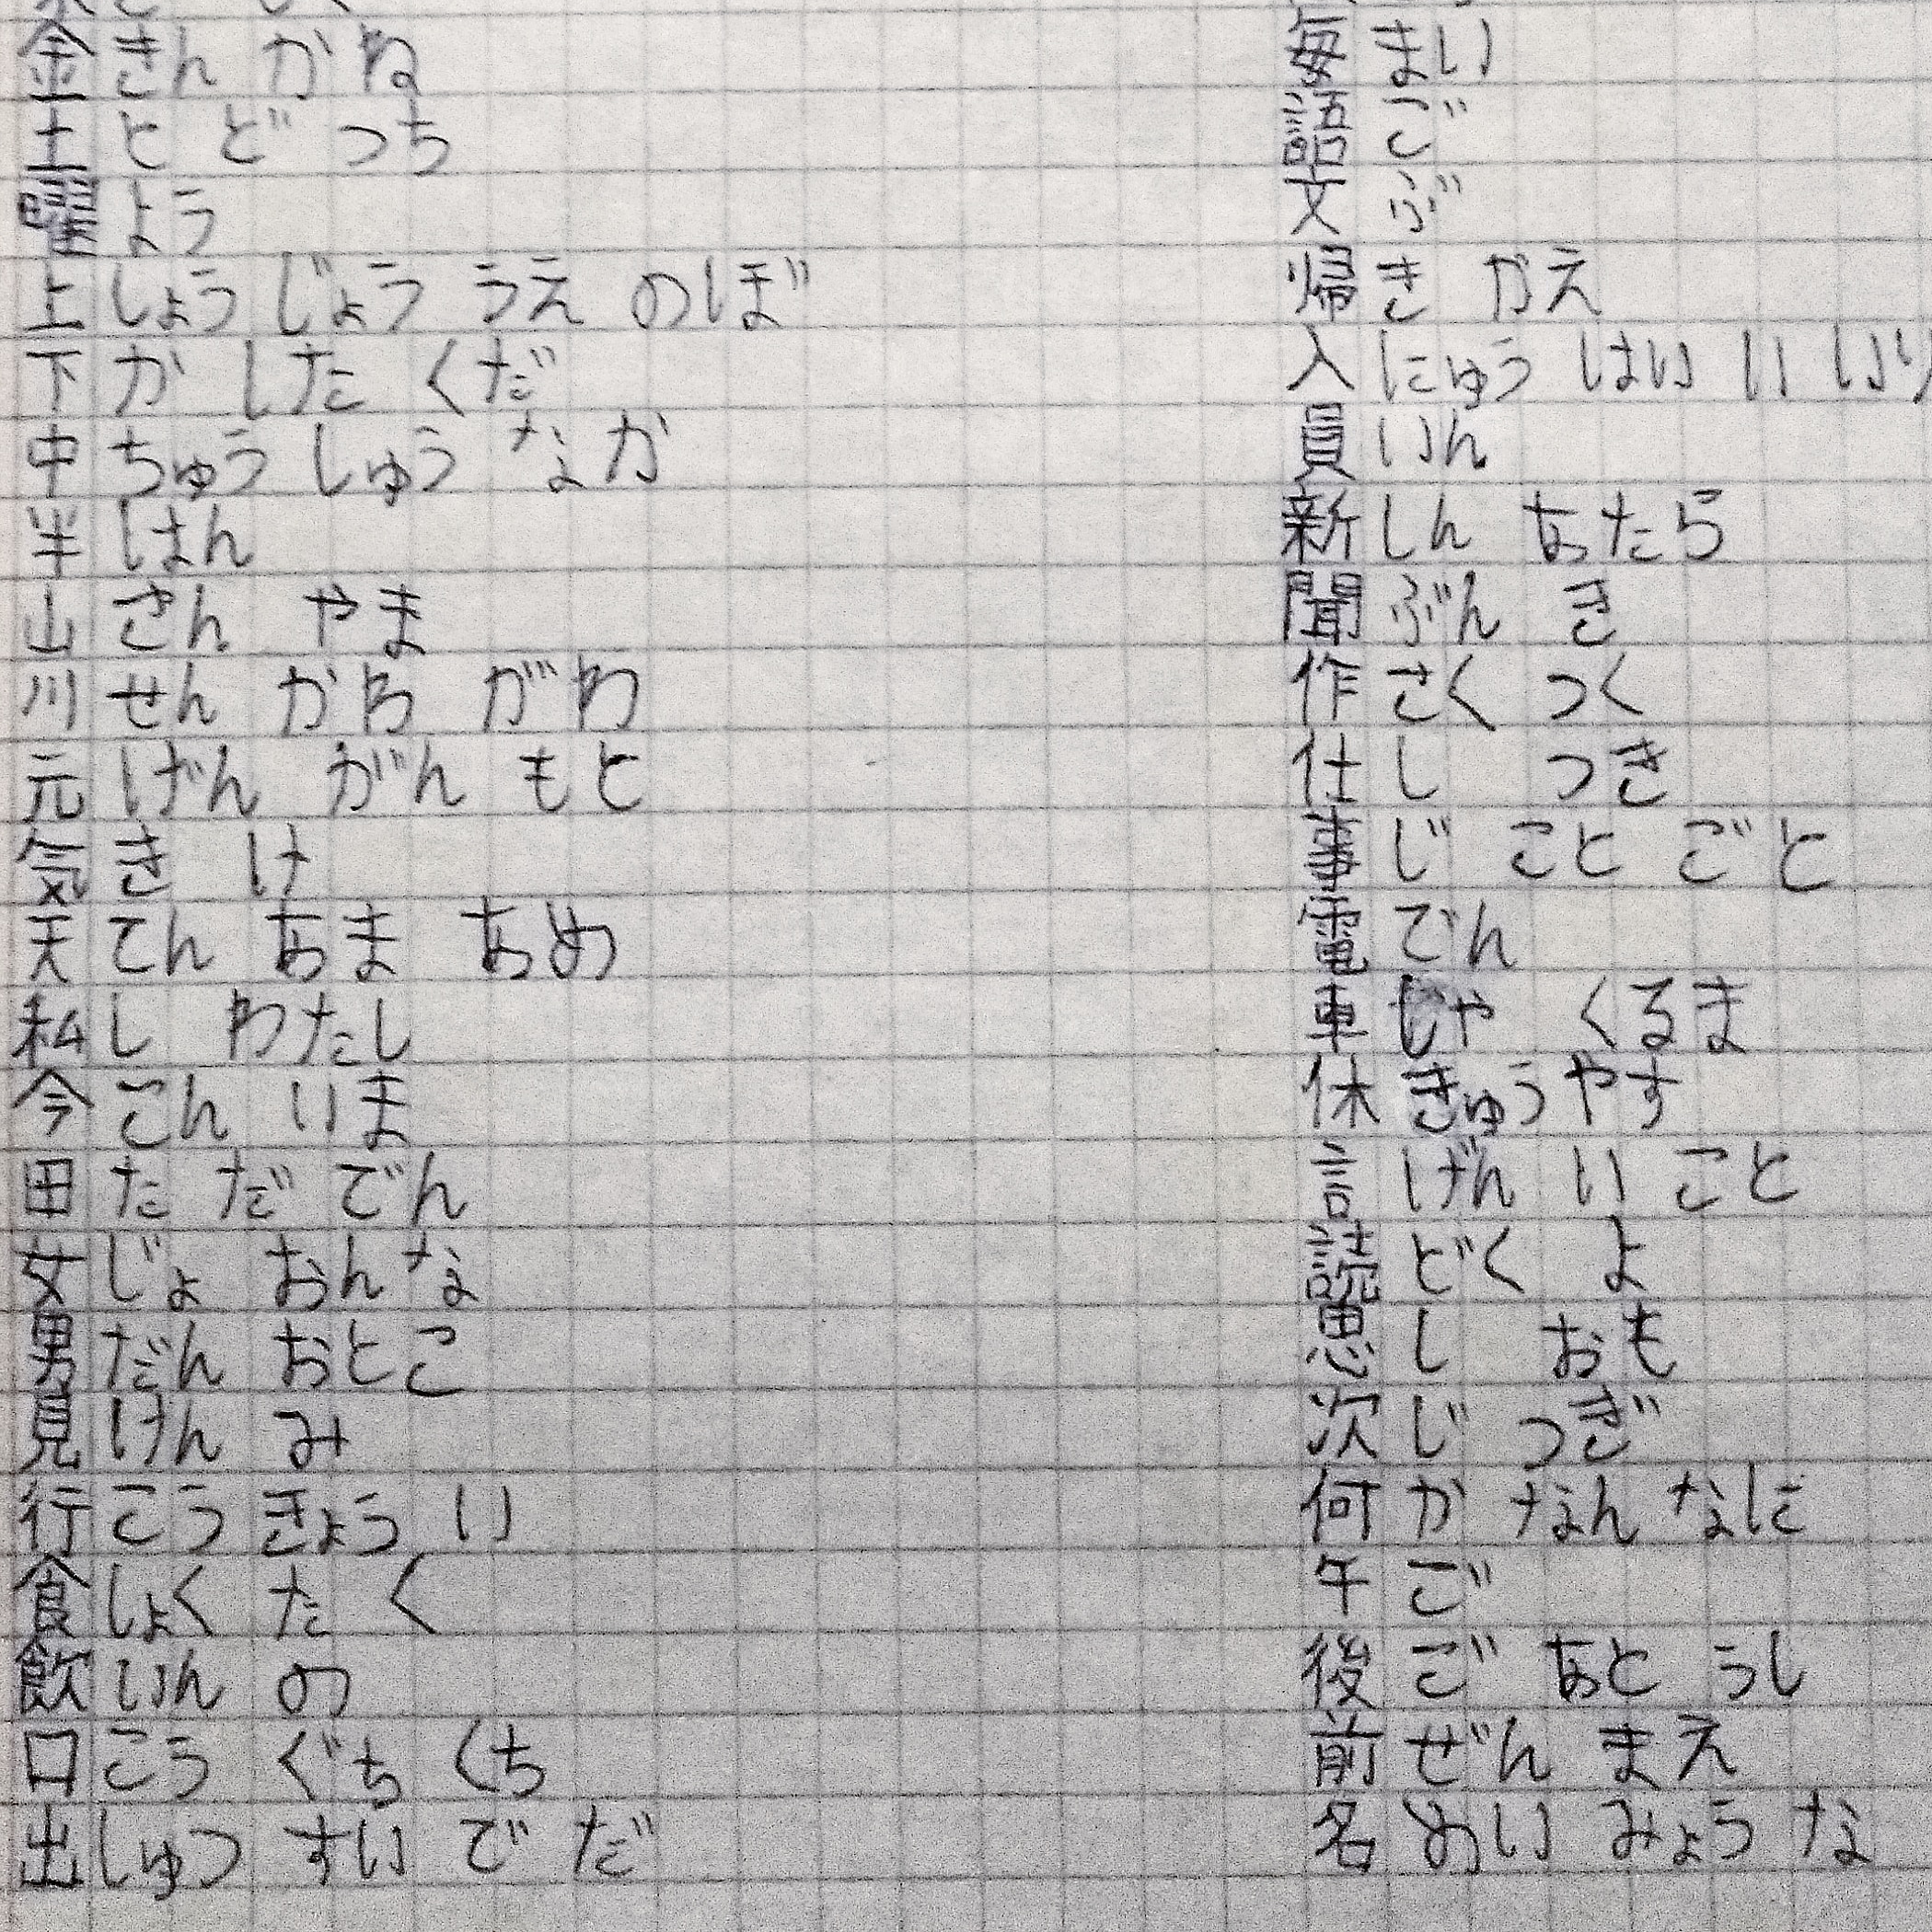 金 きん かね
土 と ど つち
曜 よう
上 しょう じょう うえ のぼ
下 か した くだ
中 ちゅう しゅう なか
半 はん
山 さん やま
川 せん かわ がわ
元 げん がん もと
気 き け
天 てん あま あめ
私 し わたし
今 こん いま
田 た だ でん
女 じょ おんな
男 だん おとこ
見 けん み
行 こう きょう い
食 しょく た く
飲 いん の
口 こう ぐち くち
出 しゅつ すい で だ
毎 まい
語 ご
文 ぶ
帰 き かえ
入 にゅう はい い いり
員 いん
新 しん あたら
聞 ぶん き
作 さく つく
仕 し つき
事 じ こと ごと
電 でん
車 しゃ くるま
休 きゅう やす
言 げん い こと
読 どく よ
思 し おも
次 じ つぎ
何 か なん なに
午 ご
後 ご あと うし
前 ぜん まえ
名 めい みょう な